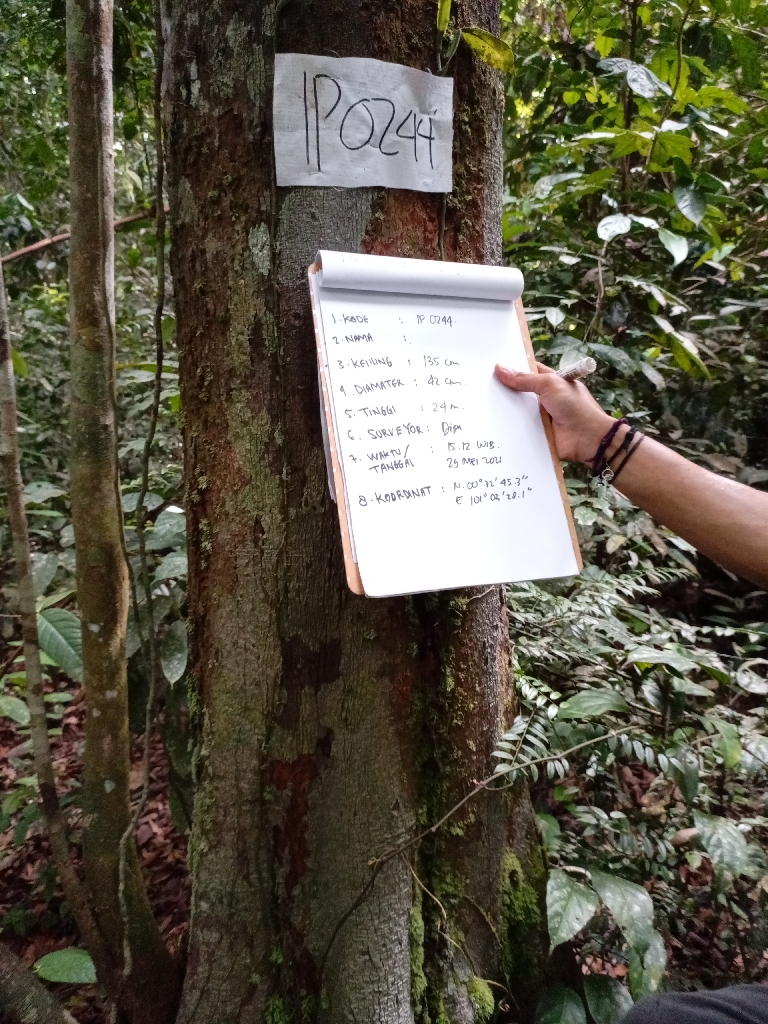 IP0244
1. KODE : IP 0244.
2. NAMA : .
3. KELILING : 135 cm
4. DIAMATER : 42 cm.
5. TINGGI : 24 m.
6. SURVEYOR : Dipa
7. WAKTU/ : 15.12 WIB.
TANGGAL 29 MEI 2021
8. KOORDINAT : N. 00° 32' 45.3"
E 101° 02' 28.1"